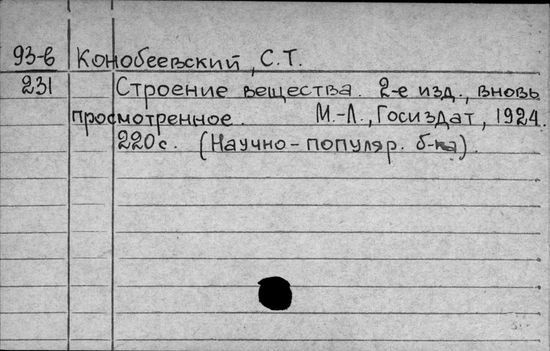 93-в Конобеевский, С.Т.
231 Строение вещества. 2-е изд., вновь
просмотренное. М.-Л., Госиздат, 1924.
220 с. (Научно-популяр. б-ка).